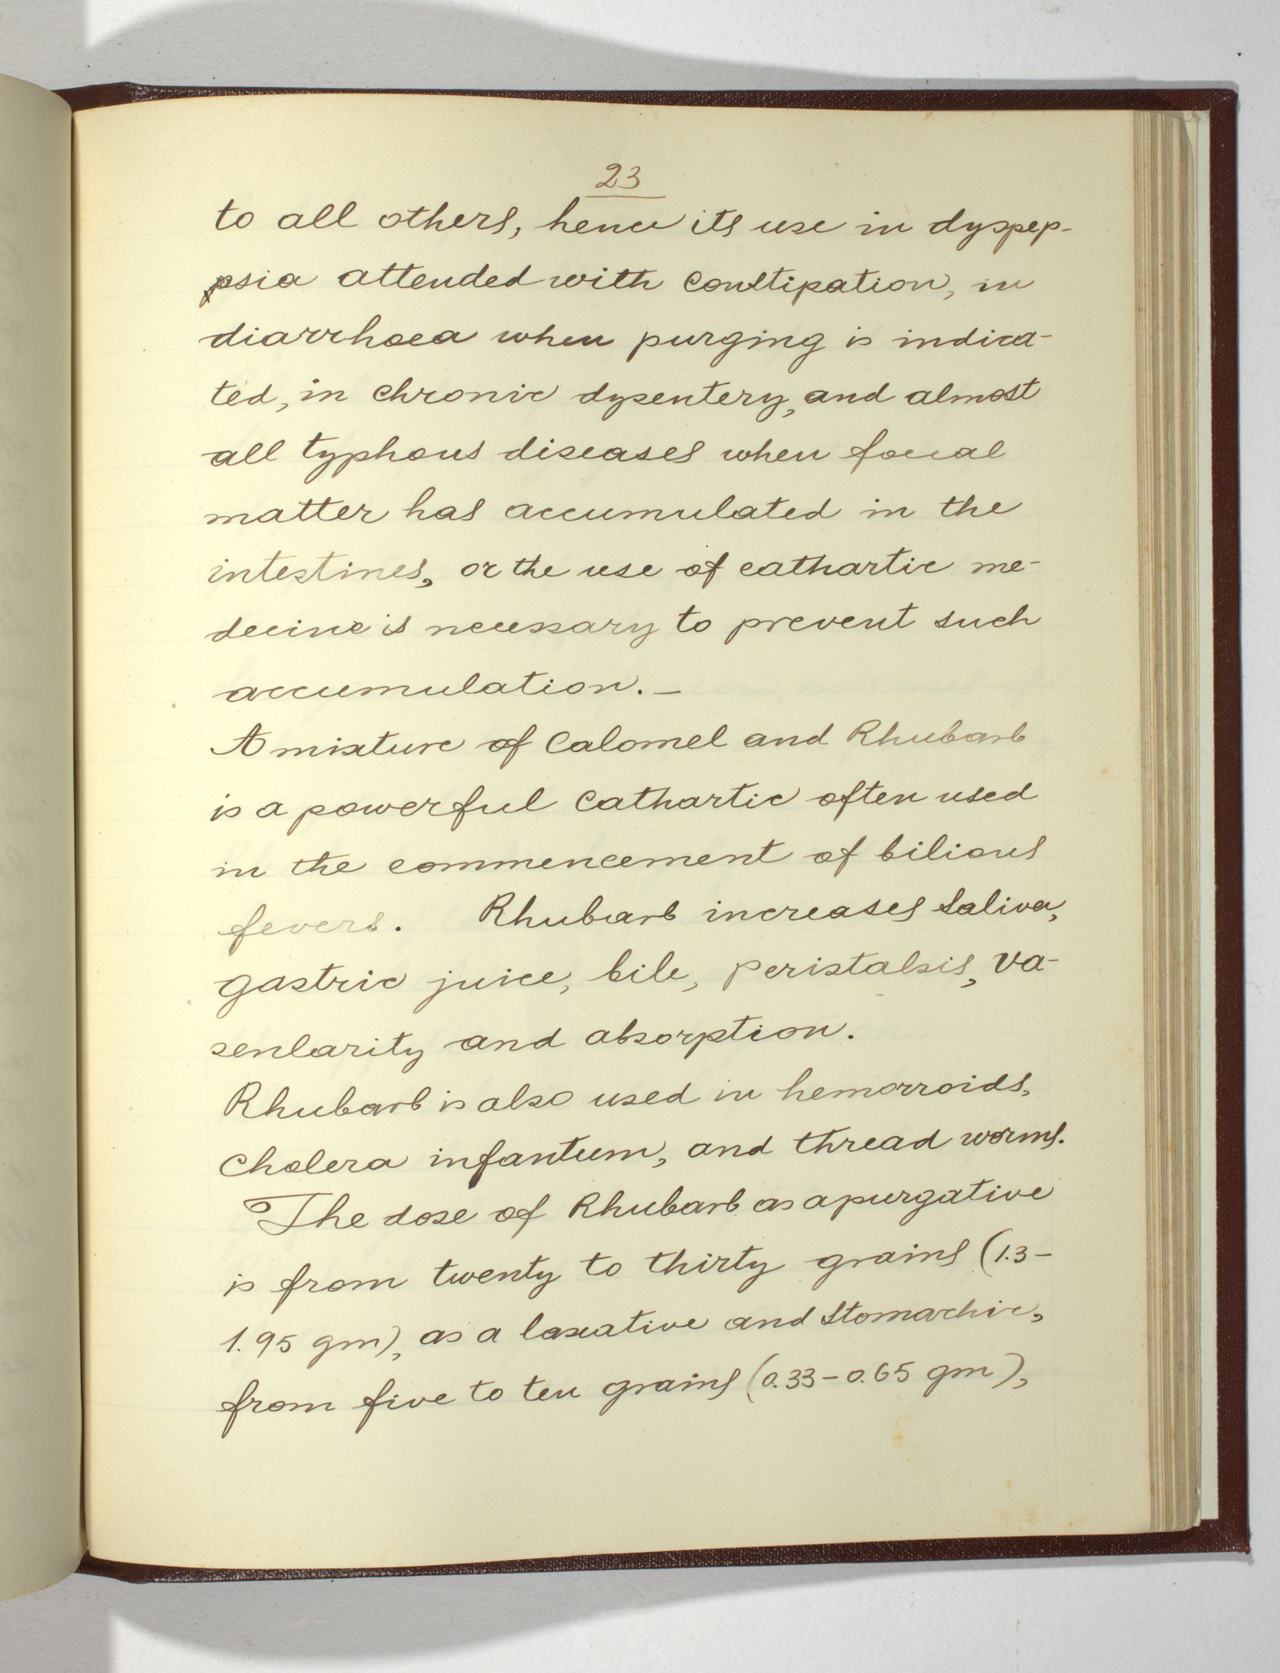 23
to all others, hence its use in dyspep-
psia attended with constipation, in
diarrhoea when purging is indica-
ted, in chronic dysentery, and almost
all typhous diseases when foecal
matter has accumulated in the
intestines, or the use of cathartic me-
decine is necessary to prevent such
accumulation. —
A mixture of Calomel and Rhubarb
is a powerful cathartic often used
in the commencement of bilious
fevers. Rhubarb increases saliva,
gastric juice, bile, peristalsis, va-
scularity and absorption.
Rhubarb is also used in hemorroids,
Cholera infantum, and thread worms.
The dose of Rhubarb as a purgative
is from twenty to thirty grains (1.3–
1.95 gm), as a laxative and stomachic,
from five to ten grains (0.33–0.65 gm),